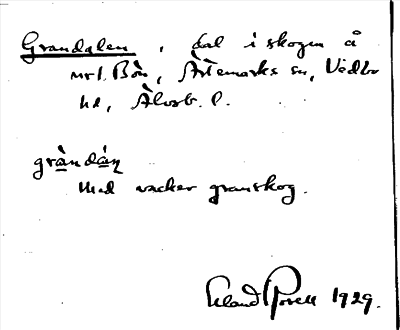 Grandalen, dal i skogen å
nr 1. Bön, Ärtemarks sn, Vedbo
hd, Älvsb. l.
gràndáņ
Med vacker granskog.
Erland Rosell 1929.